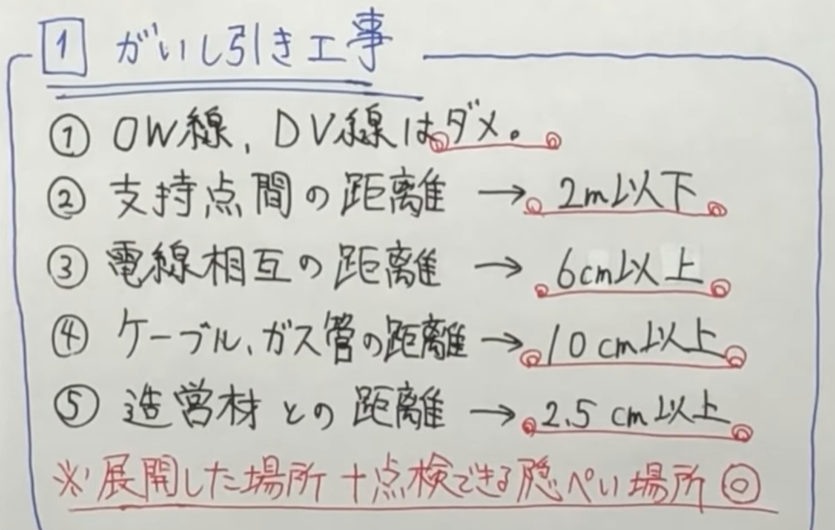 1 がいし引き工事
① OW線, DV線はダメ。
② 支持点間の距離 → 2m以下
③ 電線相互の距離 → 6cm以上
④ ケーブル、ガス管の距離 → 10cm以上
⑤ 造営材との距離 → 2.5cm以上
※展開した場所+点検できる隠ぺい場所◎